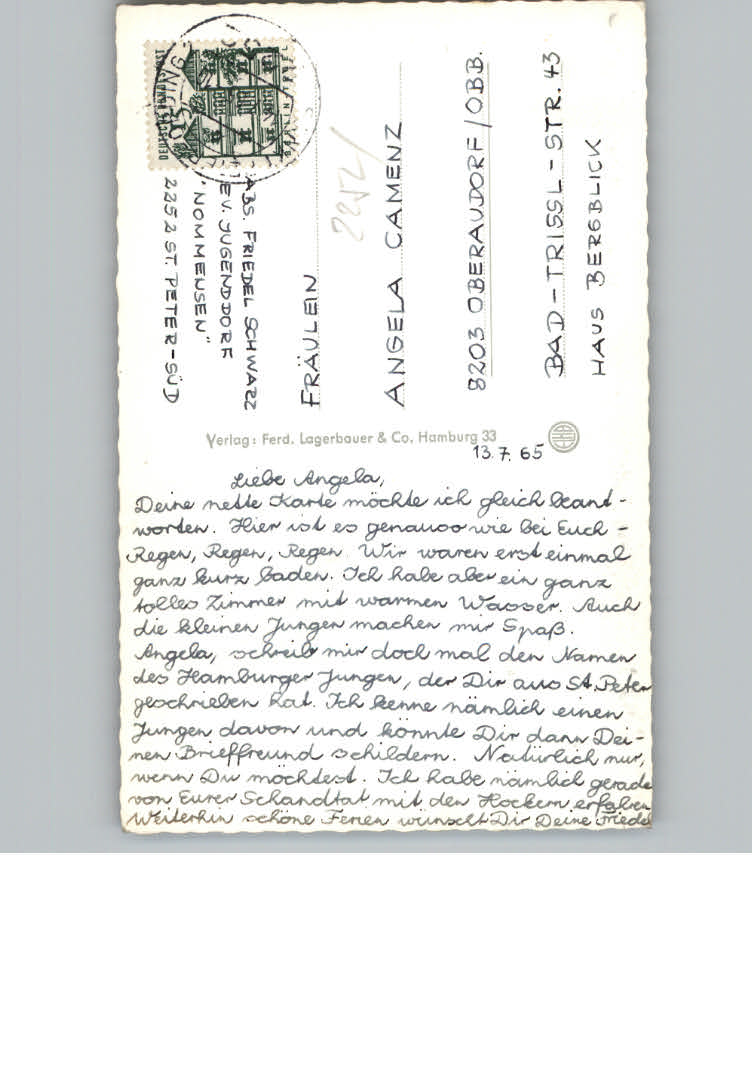 DEUTSCHE BUNDESPOST
BERLIN TEGEL
ORDING
ABS. FRIEDEL SCHWARZ
EV. JUGENDDORF
"NOMMENSEN"
2252 ST. PETER-SÜD
2252/
FRÄULEIN
ANGELA CAMENZ
8203 OBERAUDORF/OBB.
BAD-TRISSL-STR. 43
HAUS BERGBLICK
Verlag: Ferd. Lagerbauer & Co, Hamburg 33
13.7.65
Liebe Angela,
Deine nette Karte möchte ich gleich beant-
worten. Hier ist es genauso wie bei Euch -
Regen, Regen, Regen. Wir waren erst einmal
ganz kurz baden. Ich habe aber ein ganz
tolles Zimmer mit warmen Wasser. Auch
die kleinen Jungen machen mir Spaß.
Angela, schreib mir doch mal den Namen
des Hamburger Jungen, der Dir aus St. Peter
geschrieben hat. Ich kenne nämlich einen
Jungen davon und könnte Dir dann Dei-
nen Brieffreund schildern. Natürlich nur,
wenn Du möchtest. Ich habe nämlich gerade
von Eurer Schandtat mit den Hockern erfahren
Weiterhin schöne Ferien wünscht Dir Deine Friedel